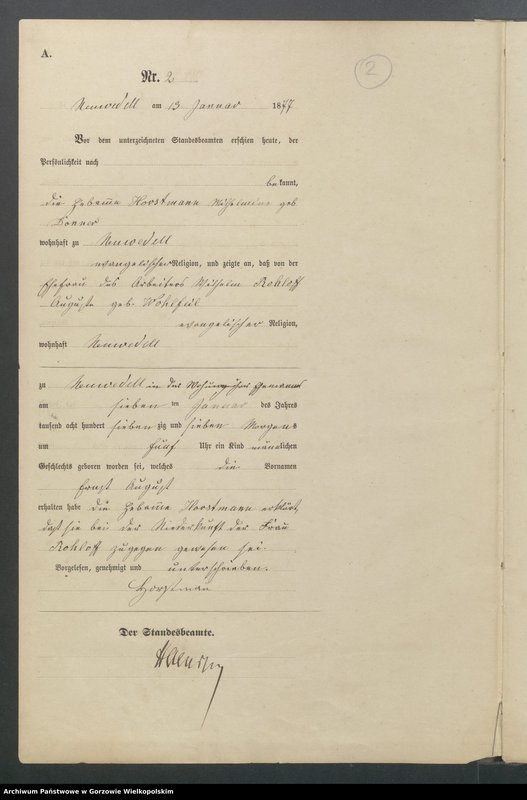 A.
Nr. 2
2
Neuwedell am 13 Januar 1877
Vor dem unterzeichneten Standesbeamten erschien heute, der
Persönlichkeit nach
bekannt,
die Hebamme Horstmann Wilhelmine geb
Donner
wohnhaft zu Neuwedell
evangelischer Religion, und zeigte an, daß von der
Ehefrau des Arbeiters Wilhelm Rohloff
Auguste geb. Wohlfeil
evangelischer Religion,
wohnhaft Neuwedell
zu Neuwedell in der Wohnung ihres Ehemannes
am sieben ten Januar des Jahres
tausend acht hundert sieben zig und sieben Morgens
um fünf Uhr ein Kind männlichen
Geschlechts geboren worden sei, welches die Vornamen
Ernst August
erhalten habe die Hebamme Horstmann erklärt,
daß sie bei der Niederkunft der Frau
Rohloff zugegen gewesen sei.
Vorgelesen, genehmigt und unterschrieben.
Horstmann
Der Standesbeamte.
Archiwum Państwowe w Gorzowie Wielkopolskim